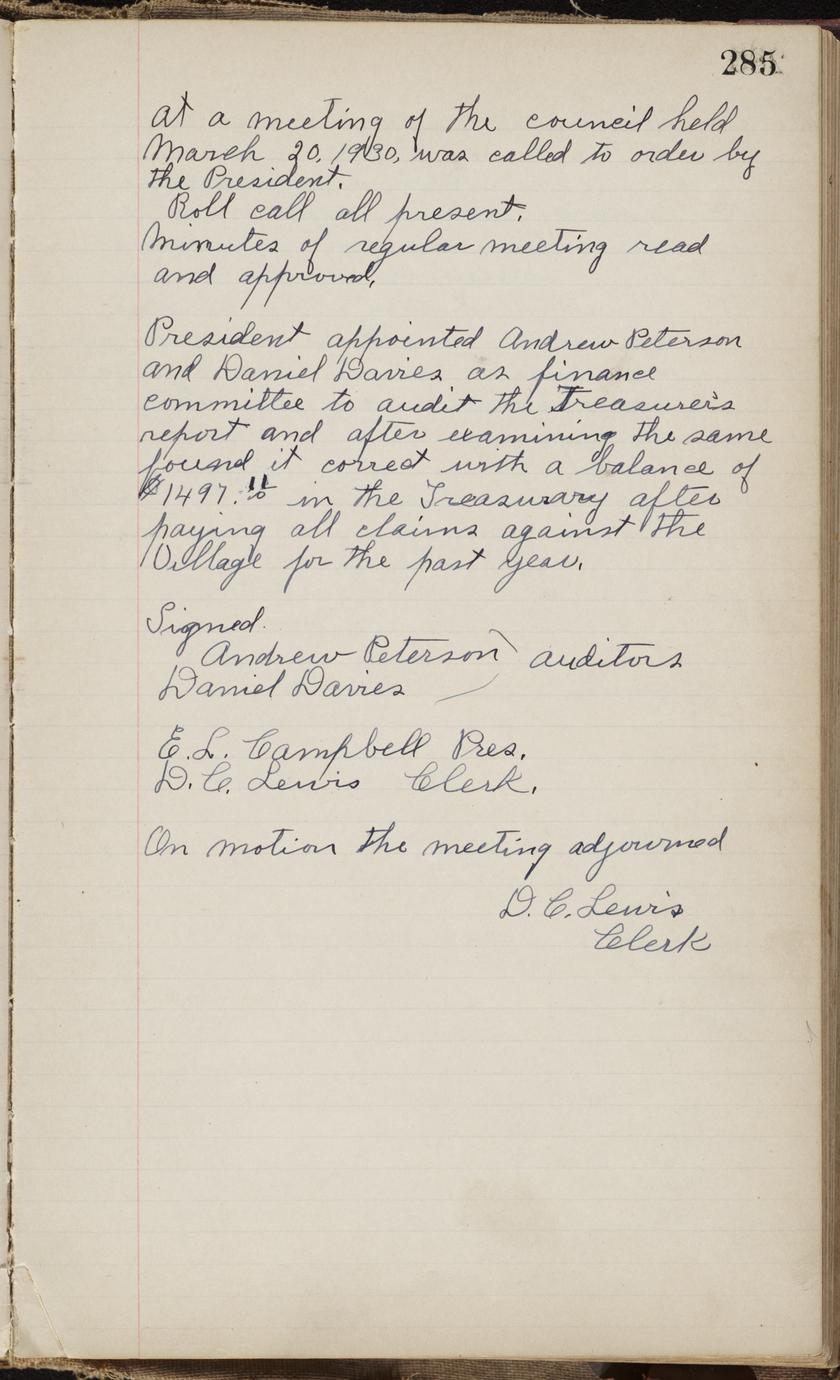 285
At a meeting of the council held
March 20, 1930, was called to order by
the President.
Roll call all present.
Minutes of regular meeting read
and approved,
President appointed Andrew Peterson
and Daniel Davies as finance
committee to audit the Treasurer's
report and after examining the same
found it correct with a balance of
$1497. in the Treasurary after
paying all claims against the
Village for the past year.
Signed.
Andrew Peterson auditors
Daniel Davies
E. L. Campbell Pres.
D. C. Lewis Clerk.
On motion the meeting adjourned
D. C. Lewis
Clerk